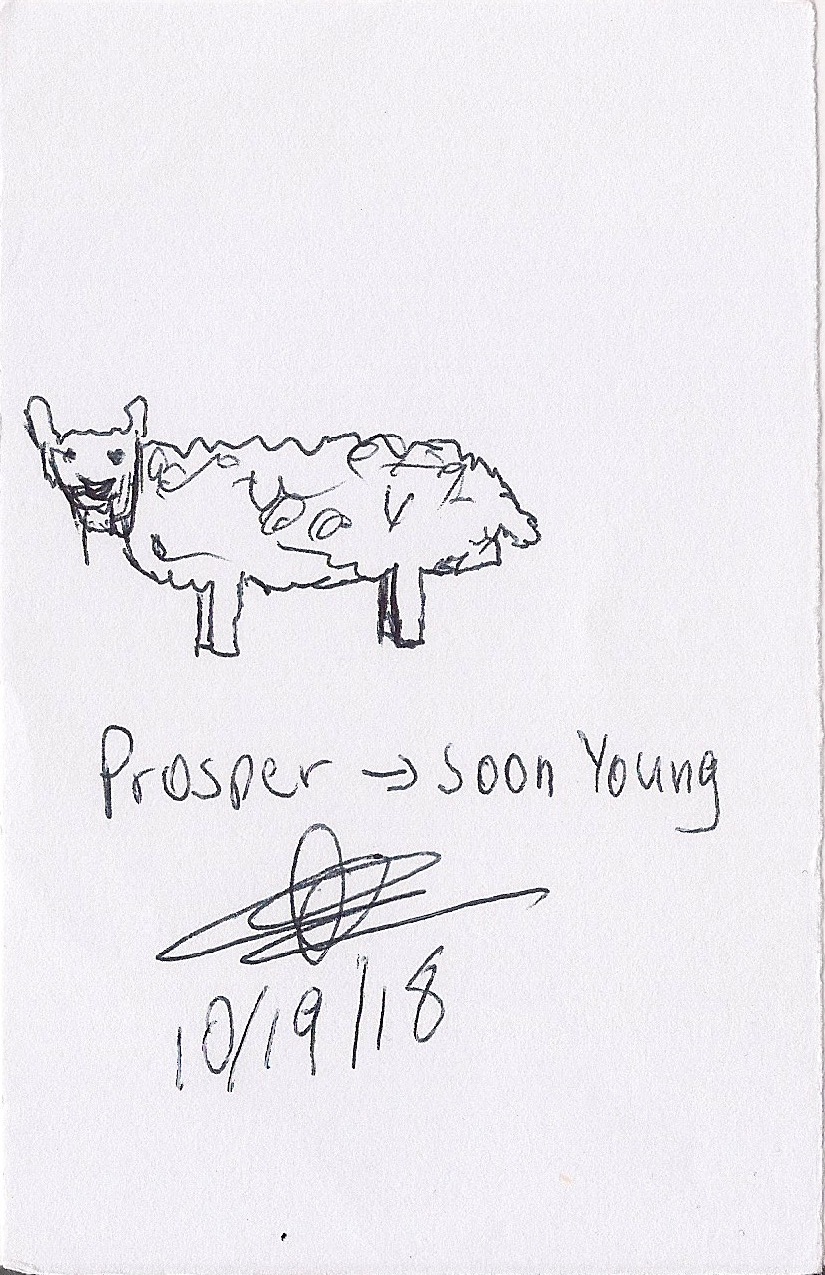 Prosper → Soon Young
10/19/18